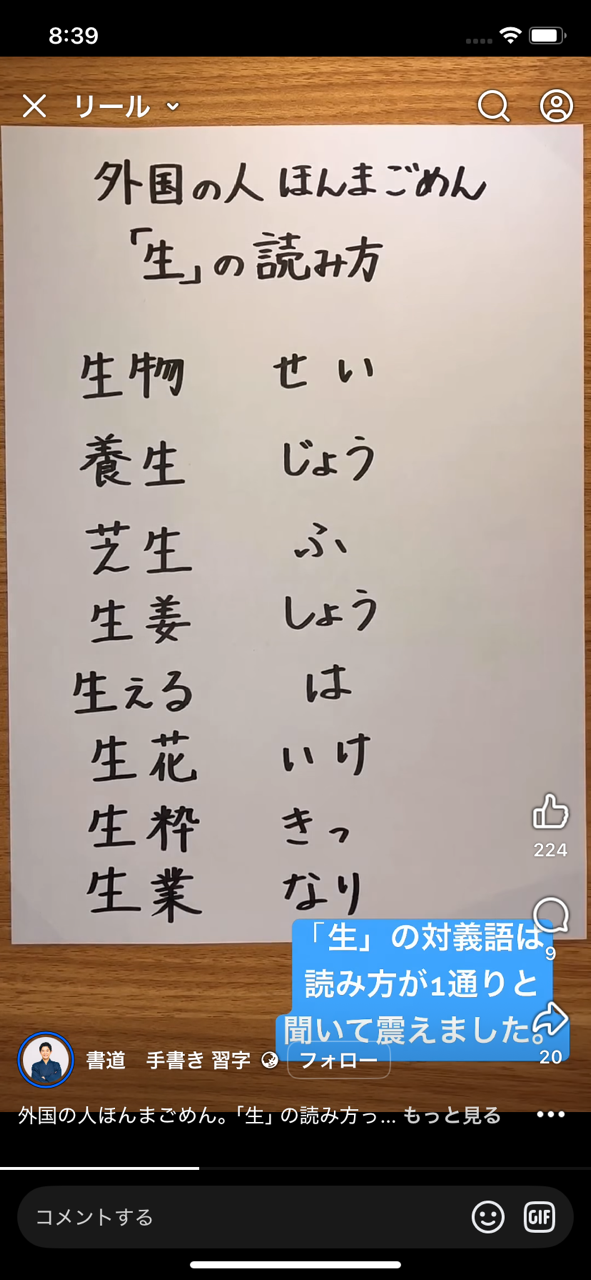 8:39
リール
外国の人 ほんまごめん
「生」の読み方
生物 せい
養生 じょう
芝生 ふ
生姜 しょう
生える は
生花 いけ
生粋 きっ
生業 なり
224
「生」の対義語は
読み方が1通りと
聞いて震えました。
9
20
書道 手書き 習字 フォロー
外国の人ほんまごめん。「生」の読み方っ... もっと見る
コメントする
GIF